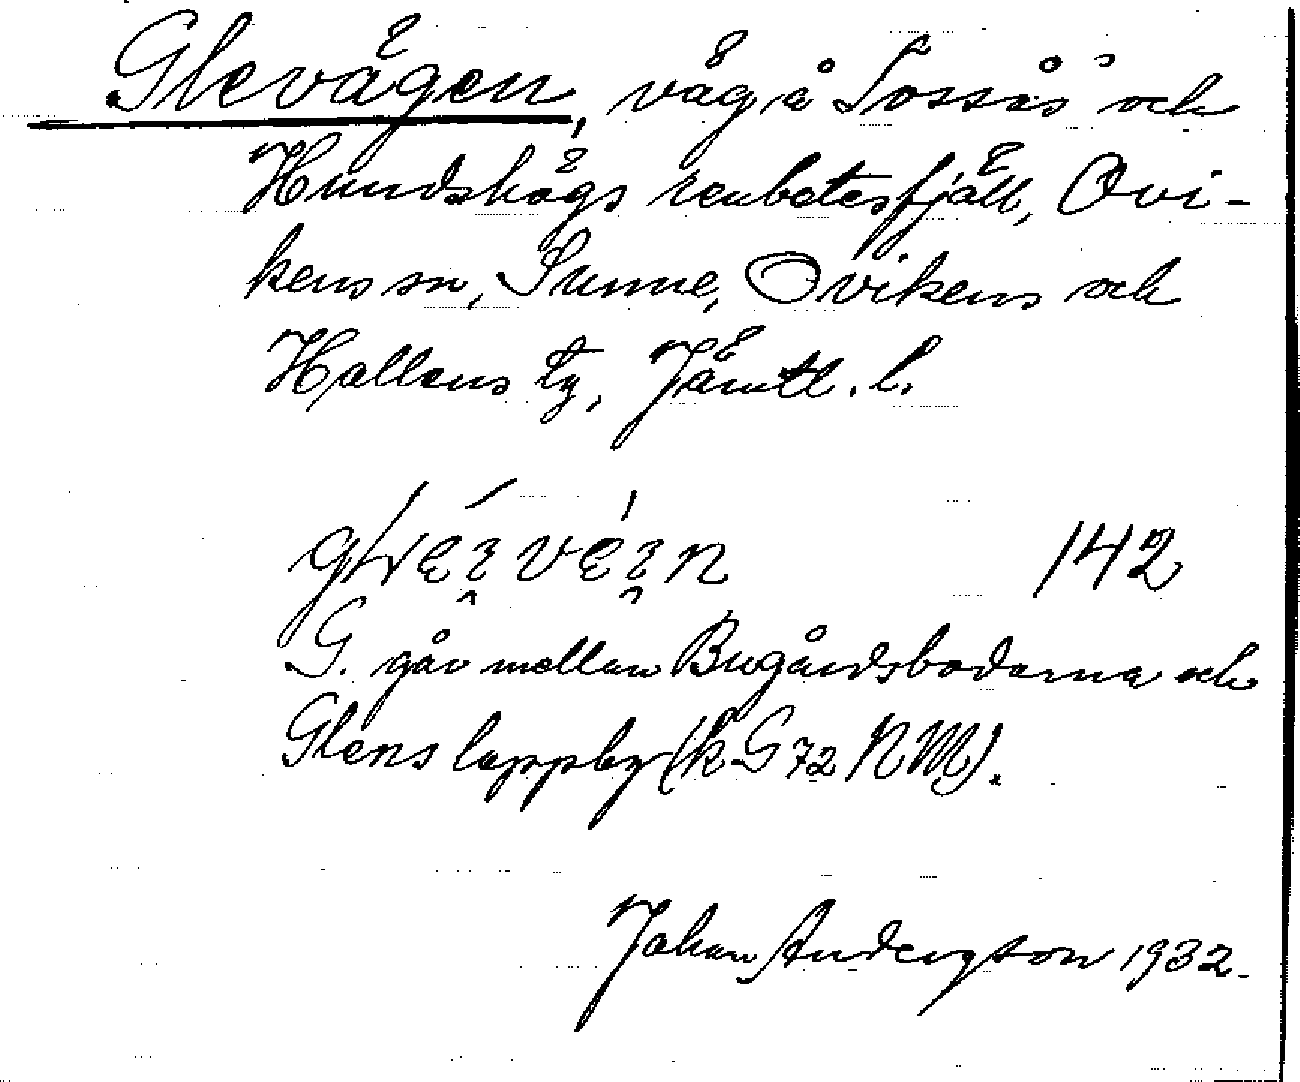 Glevägen, väg å Tossås och
Hundshögs renbetesfjäll, Ovi-
kens sn, Sunne, Ovikens och
Hallens tg, Jämtl. l.
142
G. går mellan Bugårdsbodarna och
Glens lappby (k G 72 NM).
Johan Anderzton 1932.